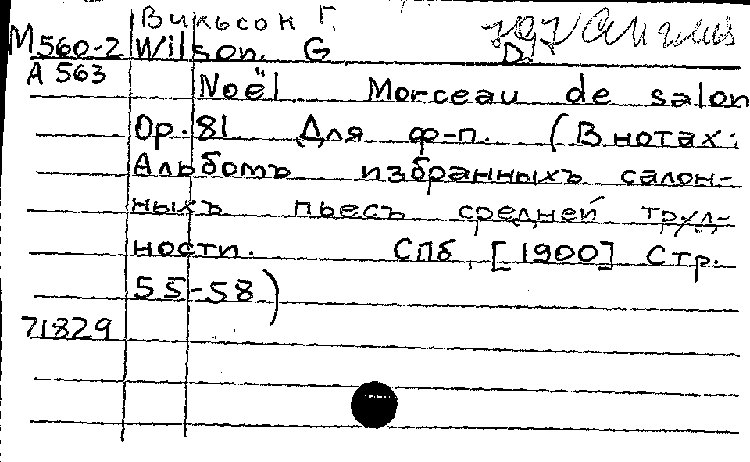 Вильсон Г.
М560-2 Wilson. G. D.
А 563
Noël Morceau de salon
Op. 81 Для ф-п. (В нотах:
Альбомъ избранныхъ салон-
ныхъ пьесъ средней труд-
ности. СПб, [1900] Стр.
55-58)
71829